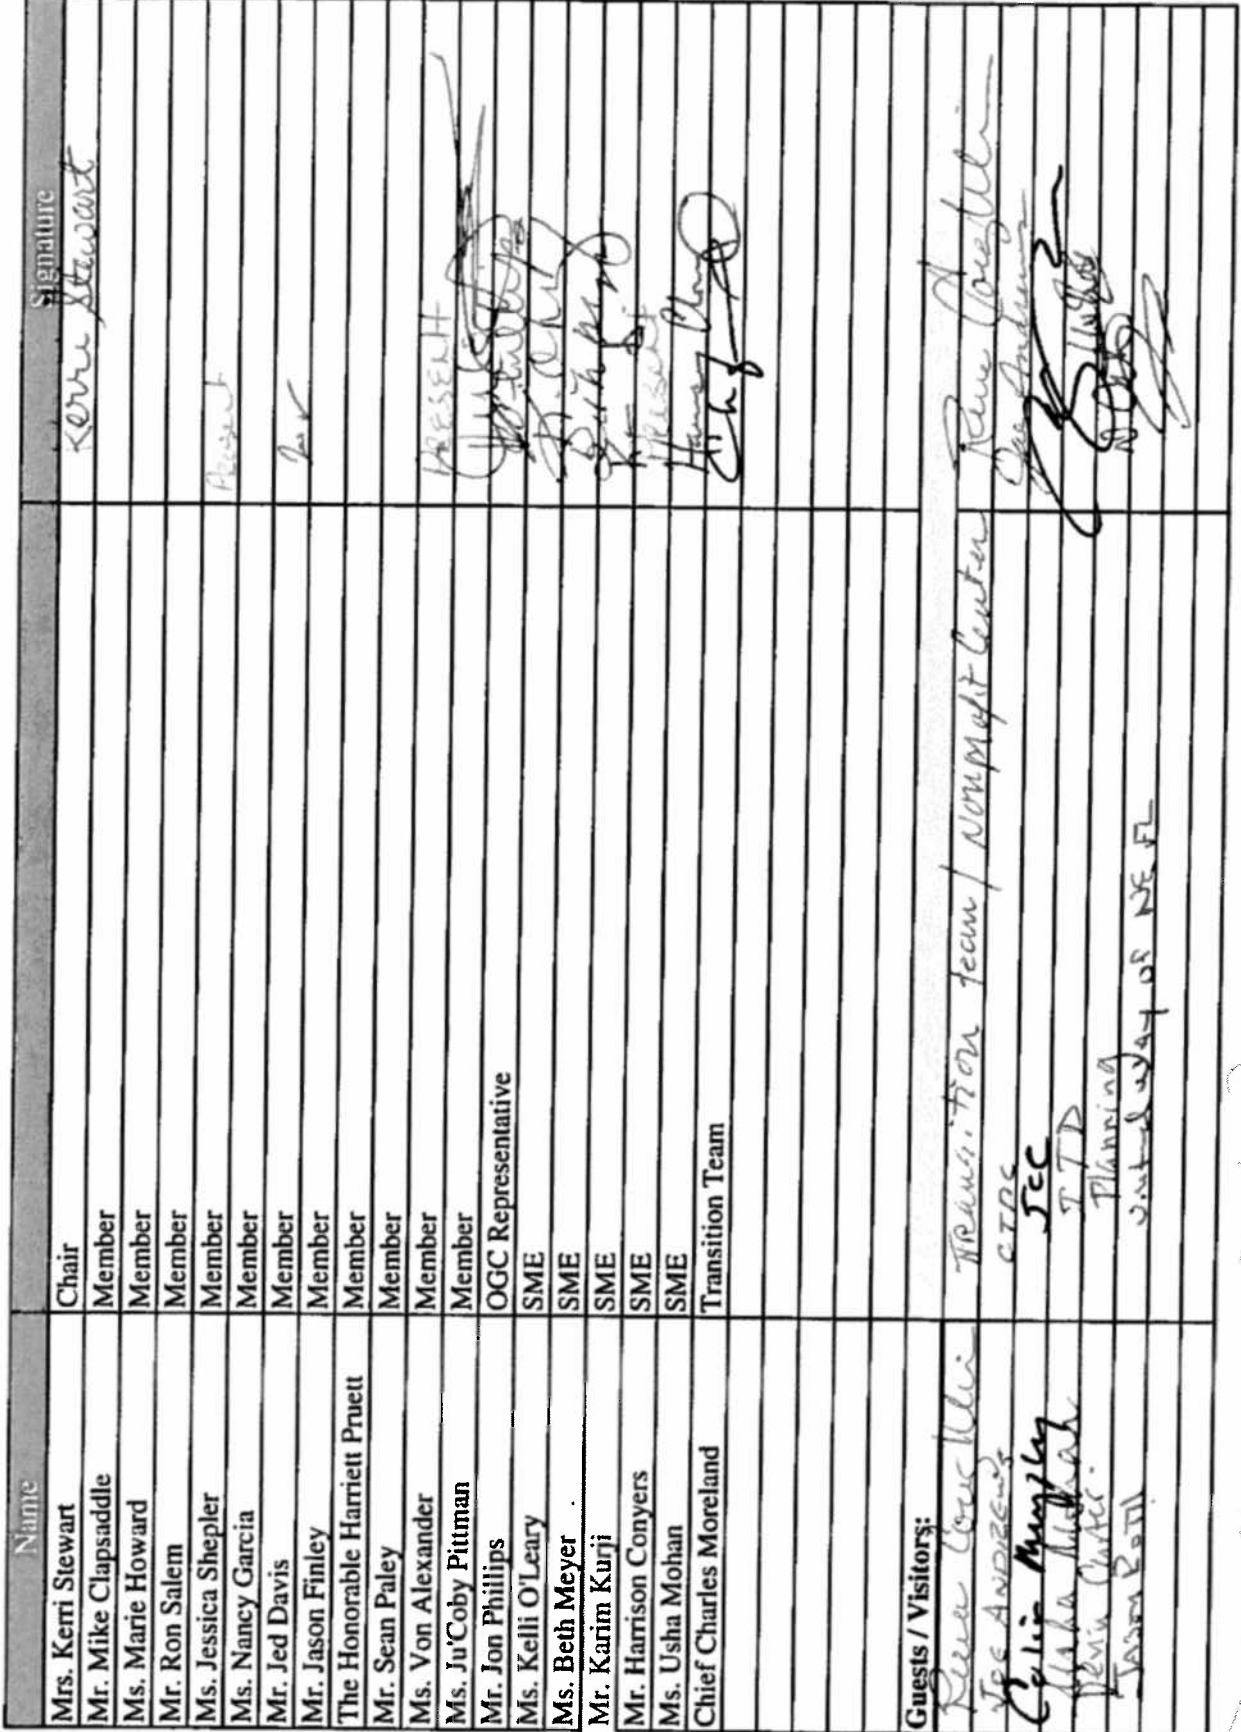 Name Signature
Mrs. Kerri Stewart Chair Kerri Stewart
Mr. Mike Clapsaddle Member
Ms. Marie Howard Member
Mr. Ron Salem Member
Ms. Jessica Shepler Member Present
Ms. Nancy Garcia Member
Mr. Jed Davis Member
Mr. Jason Finley Member
The Honorable Harriett Pruett Member
Mr. Sean Paley Member
Ms. Von Alexander Member PRESENT
Ms. Ju'Coby Pittman Member
Mr. Jon Phillips OGC Representative
Ms. Kelli O'Leary SME
Ms. Beth Meyer SME
Mr. Karim Kurji SME
Mr. Harrison Conyers SME Present
Ms. Usha Mohan SME
Chief Charles Moreland Transition Team
Guests / Visitors:
Rena Coughlin Transition Team / Nonprofit Center Rena Coughlin
JOE ANDREWS Joe Andrews
Colin Murphy JCC
ITD
Devin Carter Planning
Jason Roth United Way of NE FL